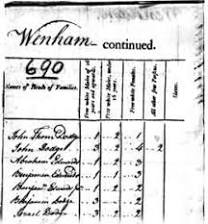 Wenham continued.
690
Names of Heads of Families.
Free white Males of 16 years and upwards.
Free white Males, under 16 years.
Free white Females.
All other free Persons.
Slaves.
John Thorn Dodge 1 2 1
John Dodge 3 2 4 2
Abraham Edwards 1 2 3
Benjamin Edwards 1 1 3
Benjamin Edwards 1 2 3
Benjamin Dodge 3 2
Israel Dodge 3 2